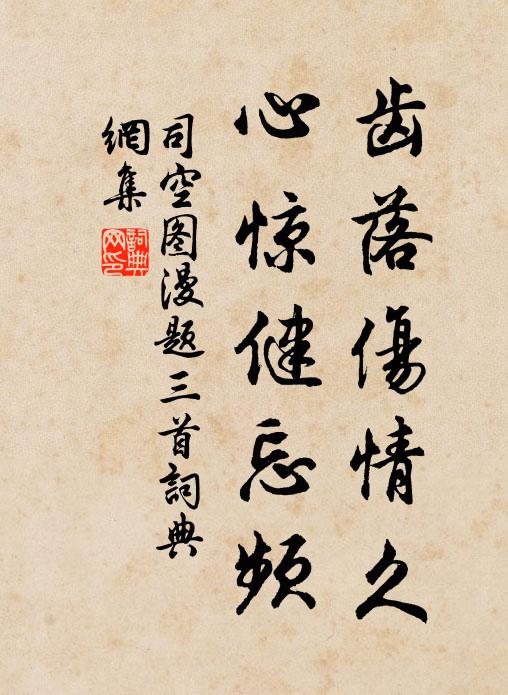 齿落傷情久
心惊健忘频
司空图漫题三首詞典
網集
詞典
网印